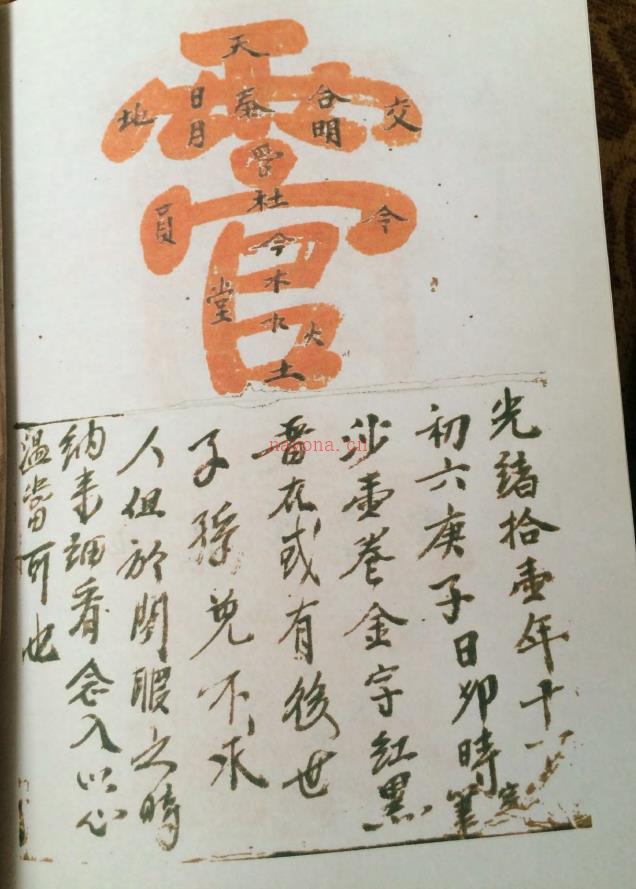 天
交
合明
日月
地
令
員
杜
今
木
水
火
堂
土
光緒拾壹年十一
初六庚子日卯時
沙壹卷金字紅黑筆
在或有後世
子孫免不求
人但於閒暇之時
納来細看念入以心
温當可也
nayona.cn